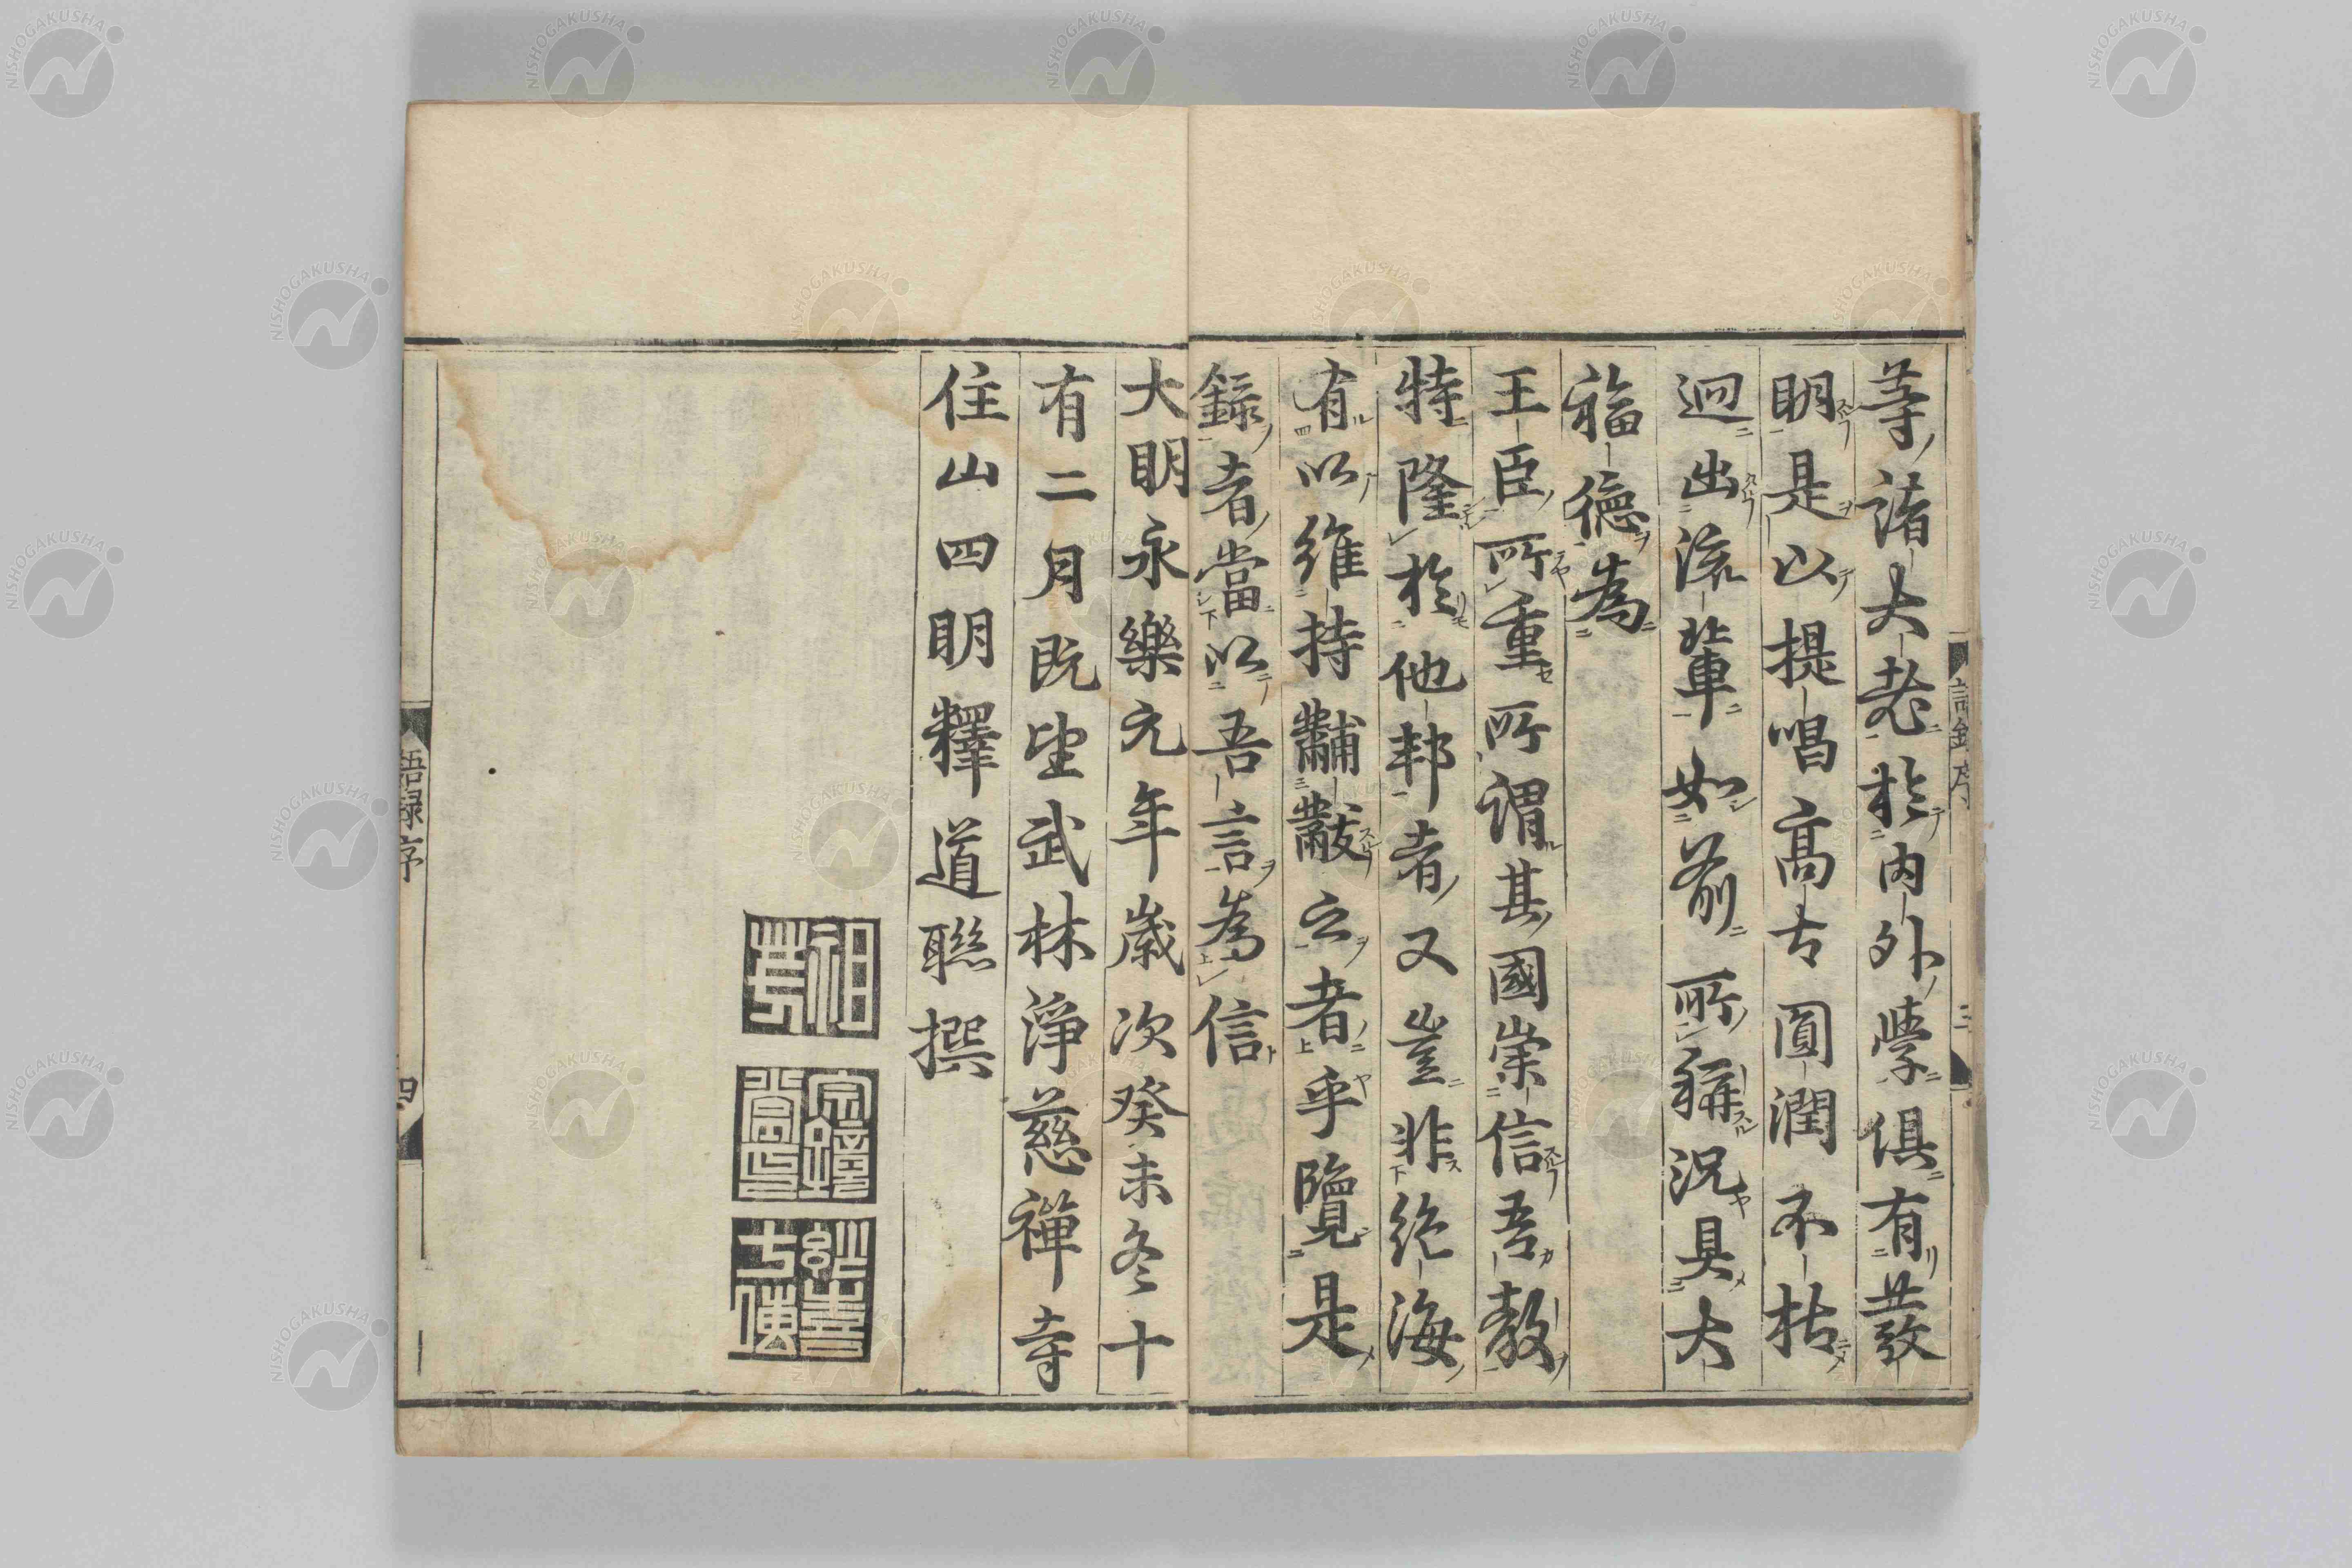 等諸大老於内外學俱有發
明是以提唱高古圓潤不枯
迥出流輩如前所稱況具大
福德為
王臣所重所謂其國崇信吾教
特隆於他邦者又豈非絶海
有以維持黼黻之者乎覽是
録者當以吾言為信
大明永樂元年歲次癸未冬十
有二月既望武林淨慈禪寺
住山四明釋道聯撰
語録序
四
NISHOGAKUSHA